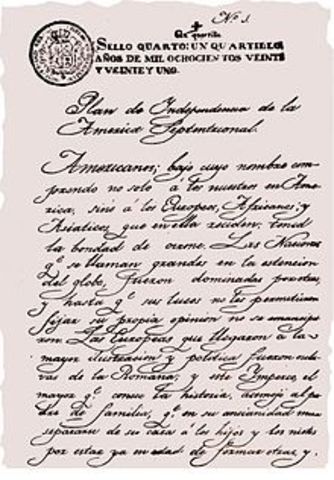 Nº 1.
Un quartillo
SELLO QUARTO: UN QUARTILLO,
AÑOS DE MIL OCHOCIENTOS VEINTE
Y VEINTE Y UNO.
Plan de Independencia de la
America Septentrional.
Americanos; bajo cuyo nombre com-
prendo no solo á los nacidos en Ame-
rica, sino á los Europeos, Africanos, y
Asiaticos, que en ella residen; tened
la bondad de oirme. Las Naciones
qᵉ se llaman grandes en la extencion
del globo, fueron dominadas por otras,
y hasta qᵉ sus luces no les permitieron
fijar su propia opinion no se emancipa-
ron. Las Europeas que llegaron á la
mayor ilustracion y politica fueron escla-
vas de la Romana; y este Imperio, el
mayor qᵉ conoce la historia, asemejó al pa-
dre de familia, qᵉ en su ancianidad mira
separarse de su casa á los hijos y los nietos
por estar ya en edad de formar otras, y